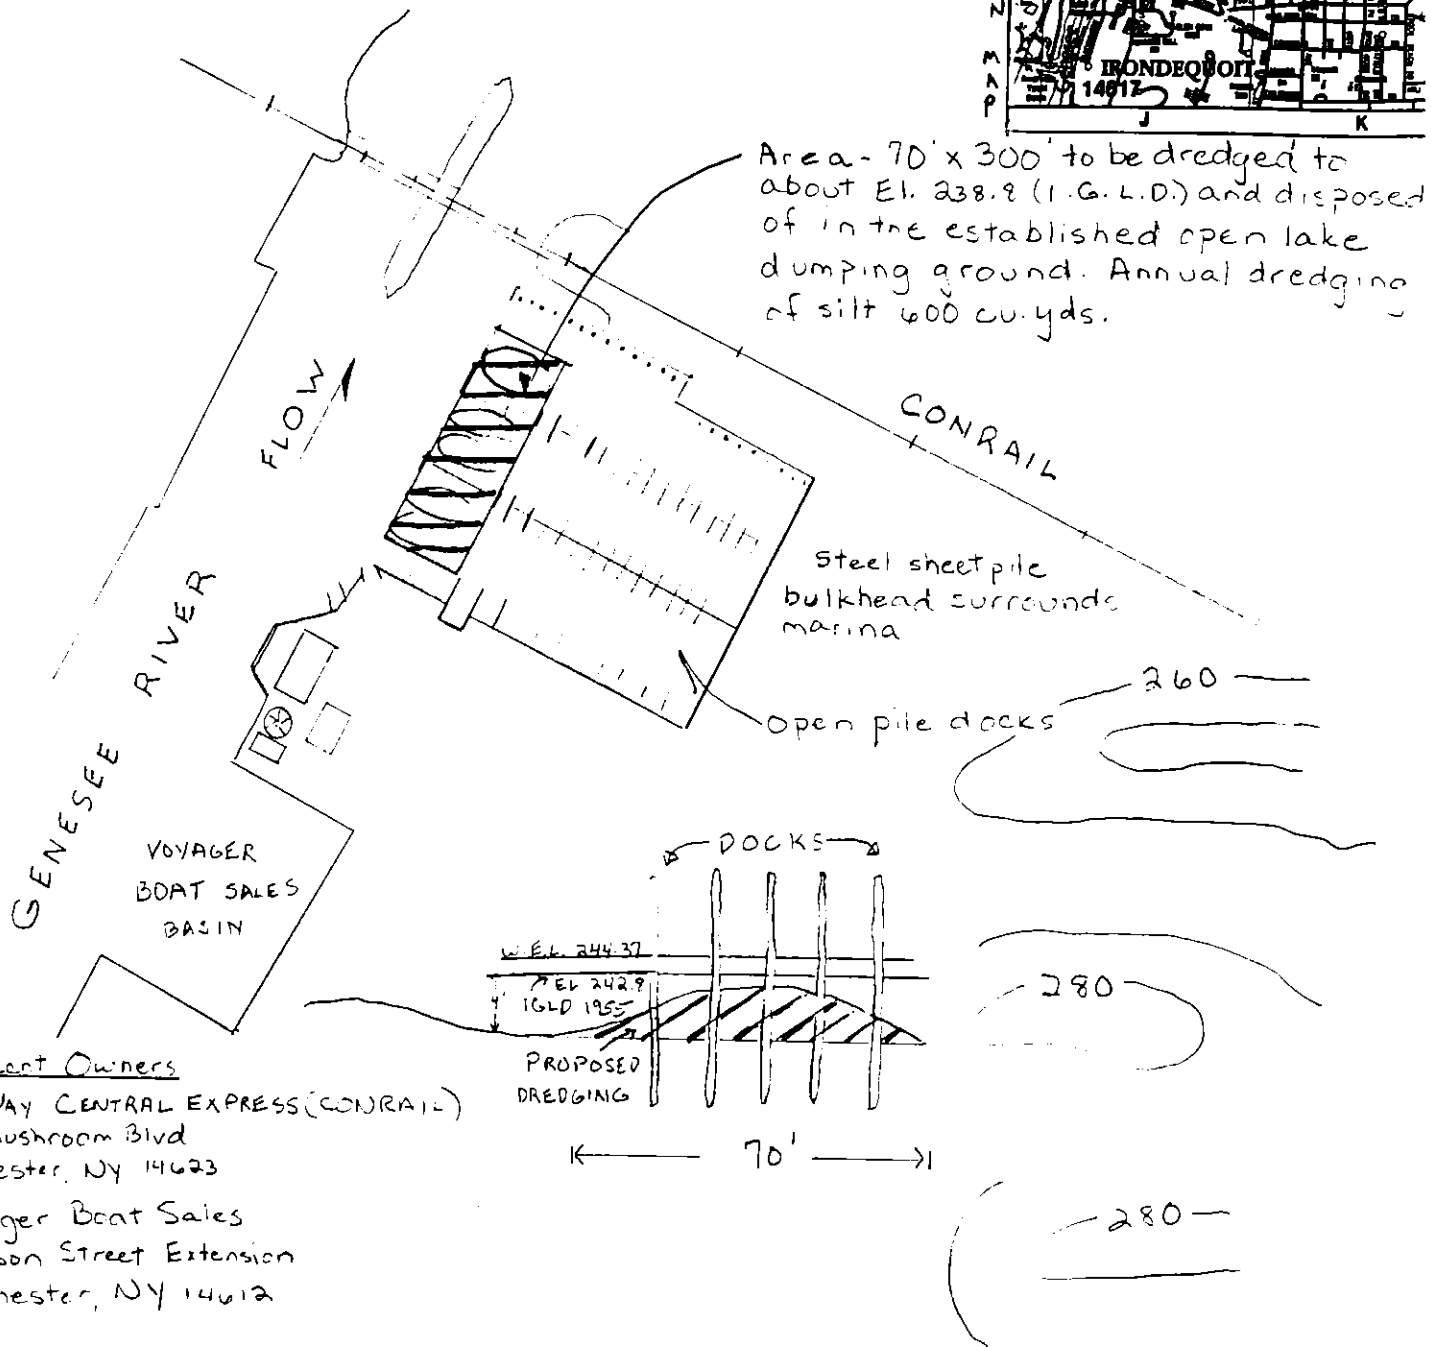 N
M
A
P
IRONDEQUOIT
14617
J
K
Area - 70' x 300' to be dredged to
about El. 238.9 (I.G.L.D.) and disposed
of in the established open lake
dumping ground. Annual dredging
of silt 600 cu. yds.
FLOW
CONRAIL
GENESEE RIVER
Steel sheet pile
bulkhead surrounds
marina
Open pile docks
260
VOYAGER
BOAT SALES
BASIN
DOCKS
W.EL. 244.37
EL 242.9
IGLD 1955
4'
PROPOSED
DREDGING
70'
280
280
Owners
CENTRAL EXPRESS (CONRAIL)
ushroom Blvd
ester, NY 14623
ger Boat Sales
on Street Extension
hester, NY 14612